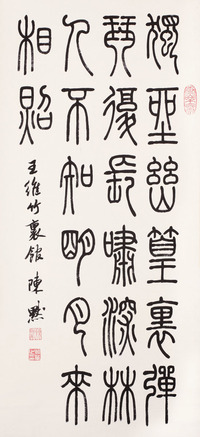 獨坐幽篁裏彈
琴復長嘯深林
人不知明月來
相照
王維竹裏館 陳默